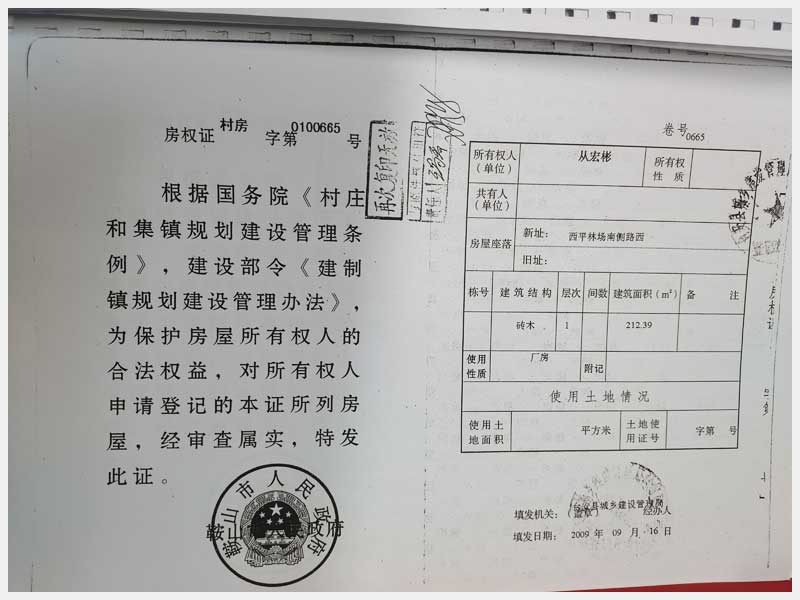 房权证 村房 字第 0100665 号
根据国务院《村庄
和集镇规划建设管理条
例》，建设部令《建制
镇规划建设管理办法》，
为保护房屋所有权人的
合法权益，对所有权人
申请登记的本证所列房
屋，经审查属实，特发
此证。
鞍山市人民政府
鞍山市人民政府
再次复印无效
责任人
卷号 0665
所有权人（单位） 从宏彬 所有权性质
共有人（单位）
房屋座落 新址： 西平林场南侧路西
旧址：
栋号 建筑结构 层次 间数 建筑面积（m²） 备注
砖木 1 212.39
使用性质 厂房 附记
使用土地情况
使用土地面积 平方米 土地使用证号 字第 号
填发机关：（盖章） 台安县城乡建设管理局 经办人
填发日期： 2009 年 09 月 16 日
房权证